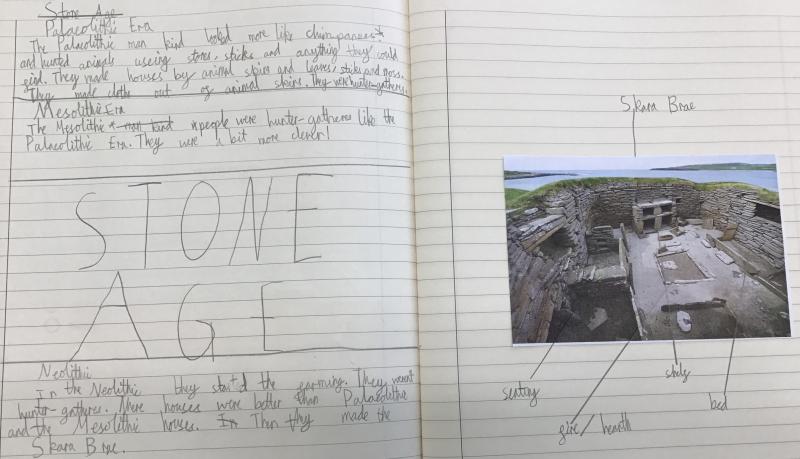 Stone Age
Palaeolithic Era
The Palaeolithic man kind looked more like chimpanzees
and hunted animals useing stones, sticks and anything they could
find. They made houses by animal skins and leaves, sticks and moss.
They made cloths out of animal skins. They were hunter-gathers.
Mesolithic Era
The Mesolithic man kind people were hunter-gatheres like the
Palaeolithic Era. They were a bit more clever!
STONE
AGE
Neolithic
In the Neolithic they started the farming. They weren't
hunter-gatheres. There houses were better than Palaeolithic
and the Mesolithic houses. In Then they made the
Skara Brae.
Skara Brae
seating
fire/hearth
bed